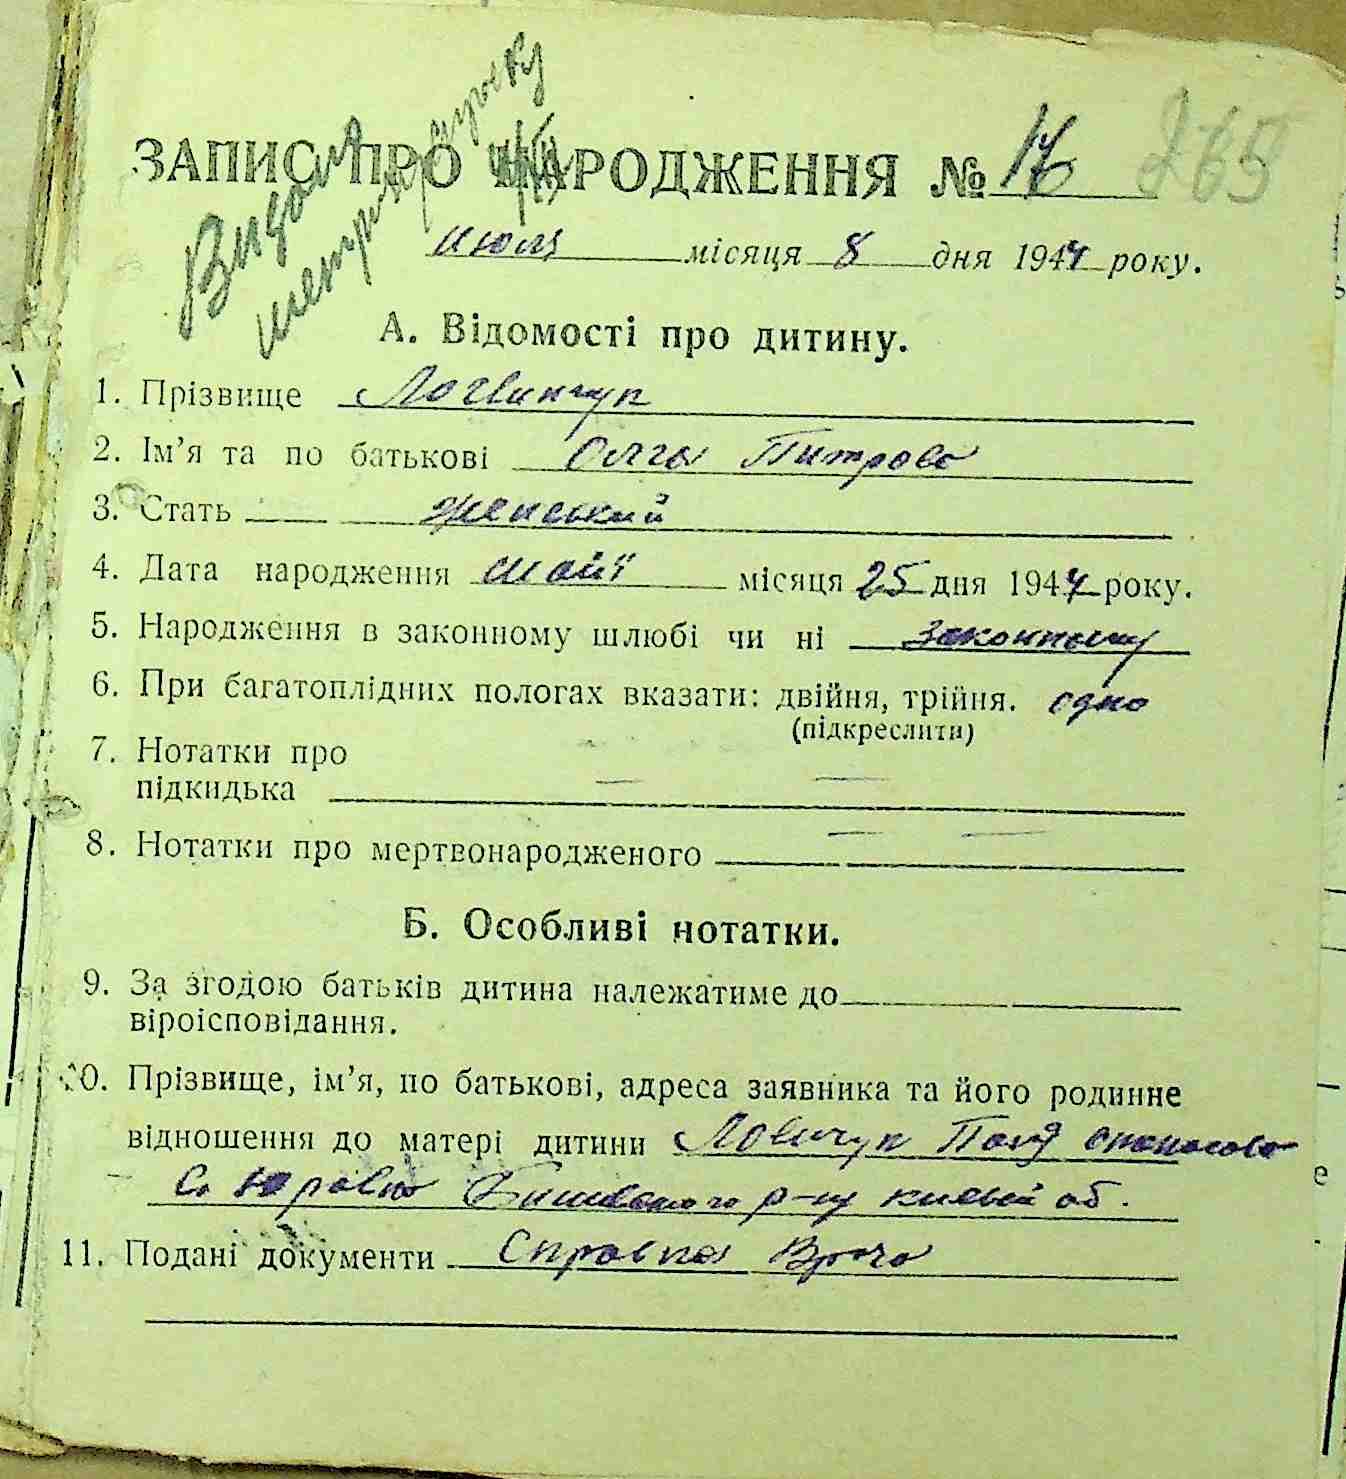 265
Видана
метрику
ЗАПИС ПРО НАРОДЖЕННЯ № 16
июля місяця 8 дня 1944 року.
А. Відомості про дитину.
1. Прізвище Логвинчук
2. Ім’я та по батькові Ольга Питрово
3. Стать женський
4. Дата народження майї місяця 25 дня 1944 року.
5. Народження в законному шлюбі чи ні законному
6. При багатоплідних пологах вказати: двійня, трійня. одно
(підкреслити)
7. Нотатки про
підкидька — —
8. Нотатки про мертвонародженого — —
Б. Особливі нотатки.
9. За згодою батьків дитина належатиме до
віроісповідання.
10. Прізвище, ім’я, по батькові, адреса заявника та його родинне
відношення до матері дитини Ловичук
С. Юровка р-ну київ об.
11. Подані документи Справка Врача